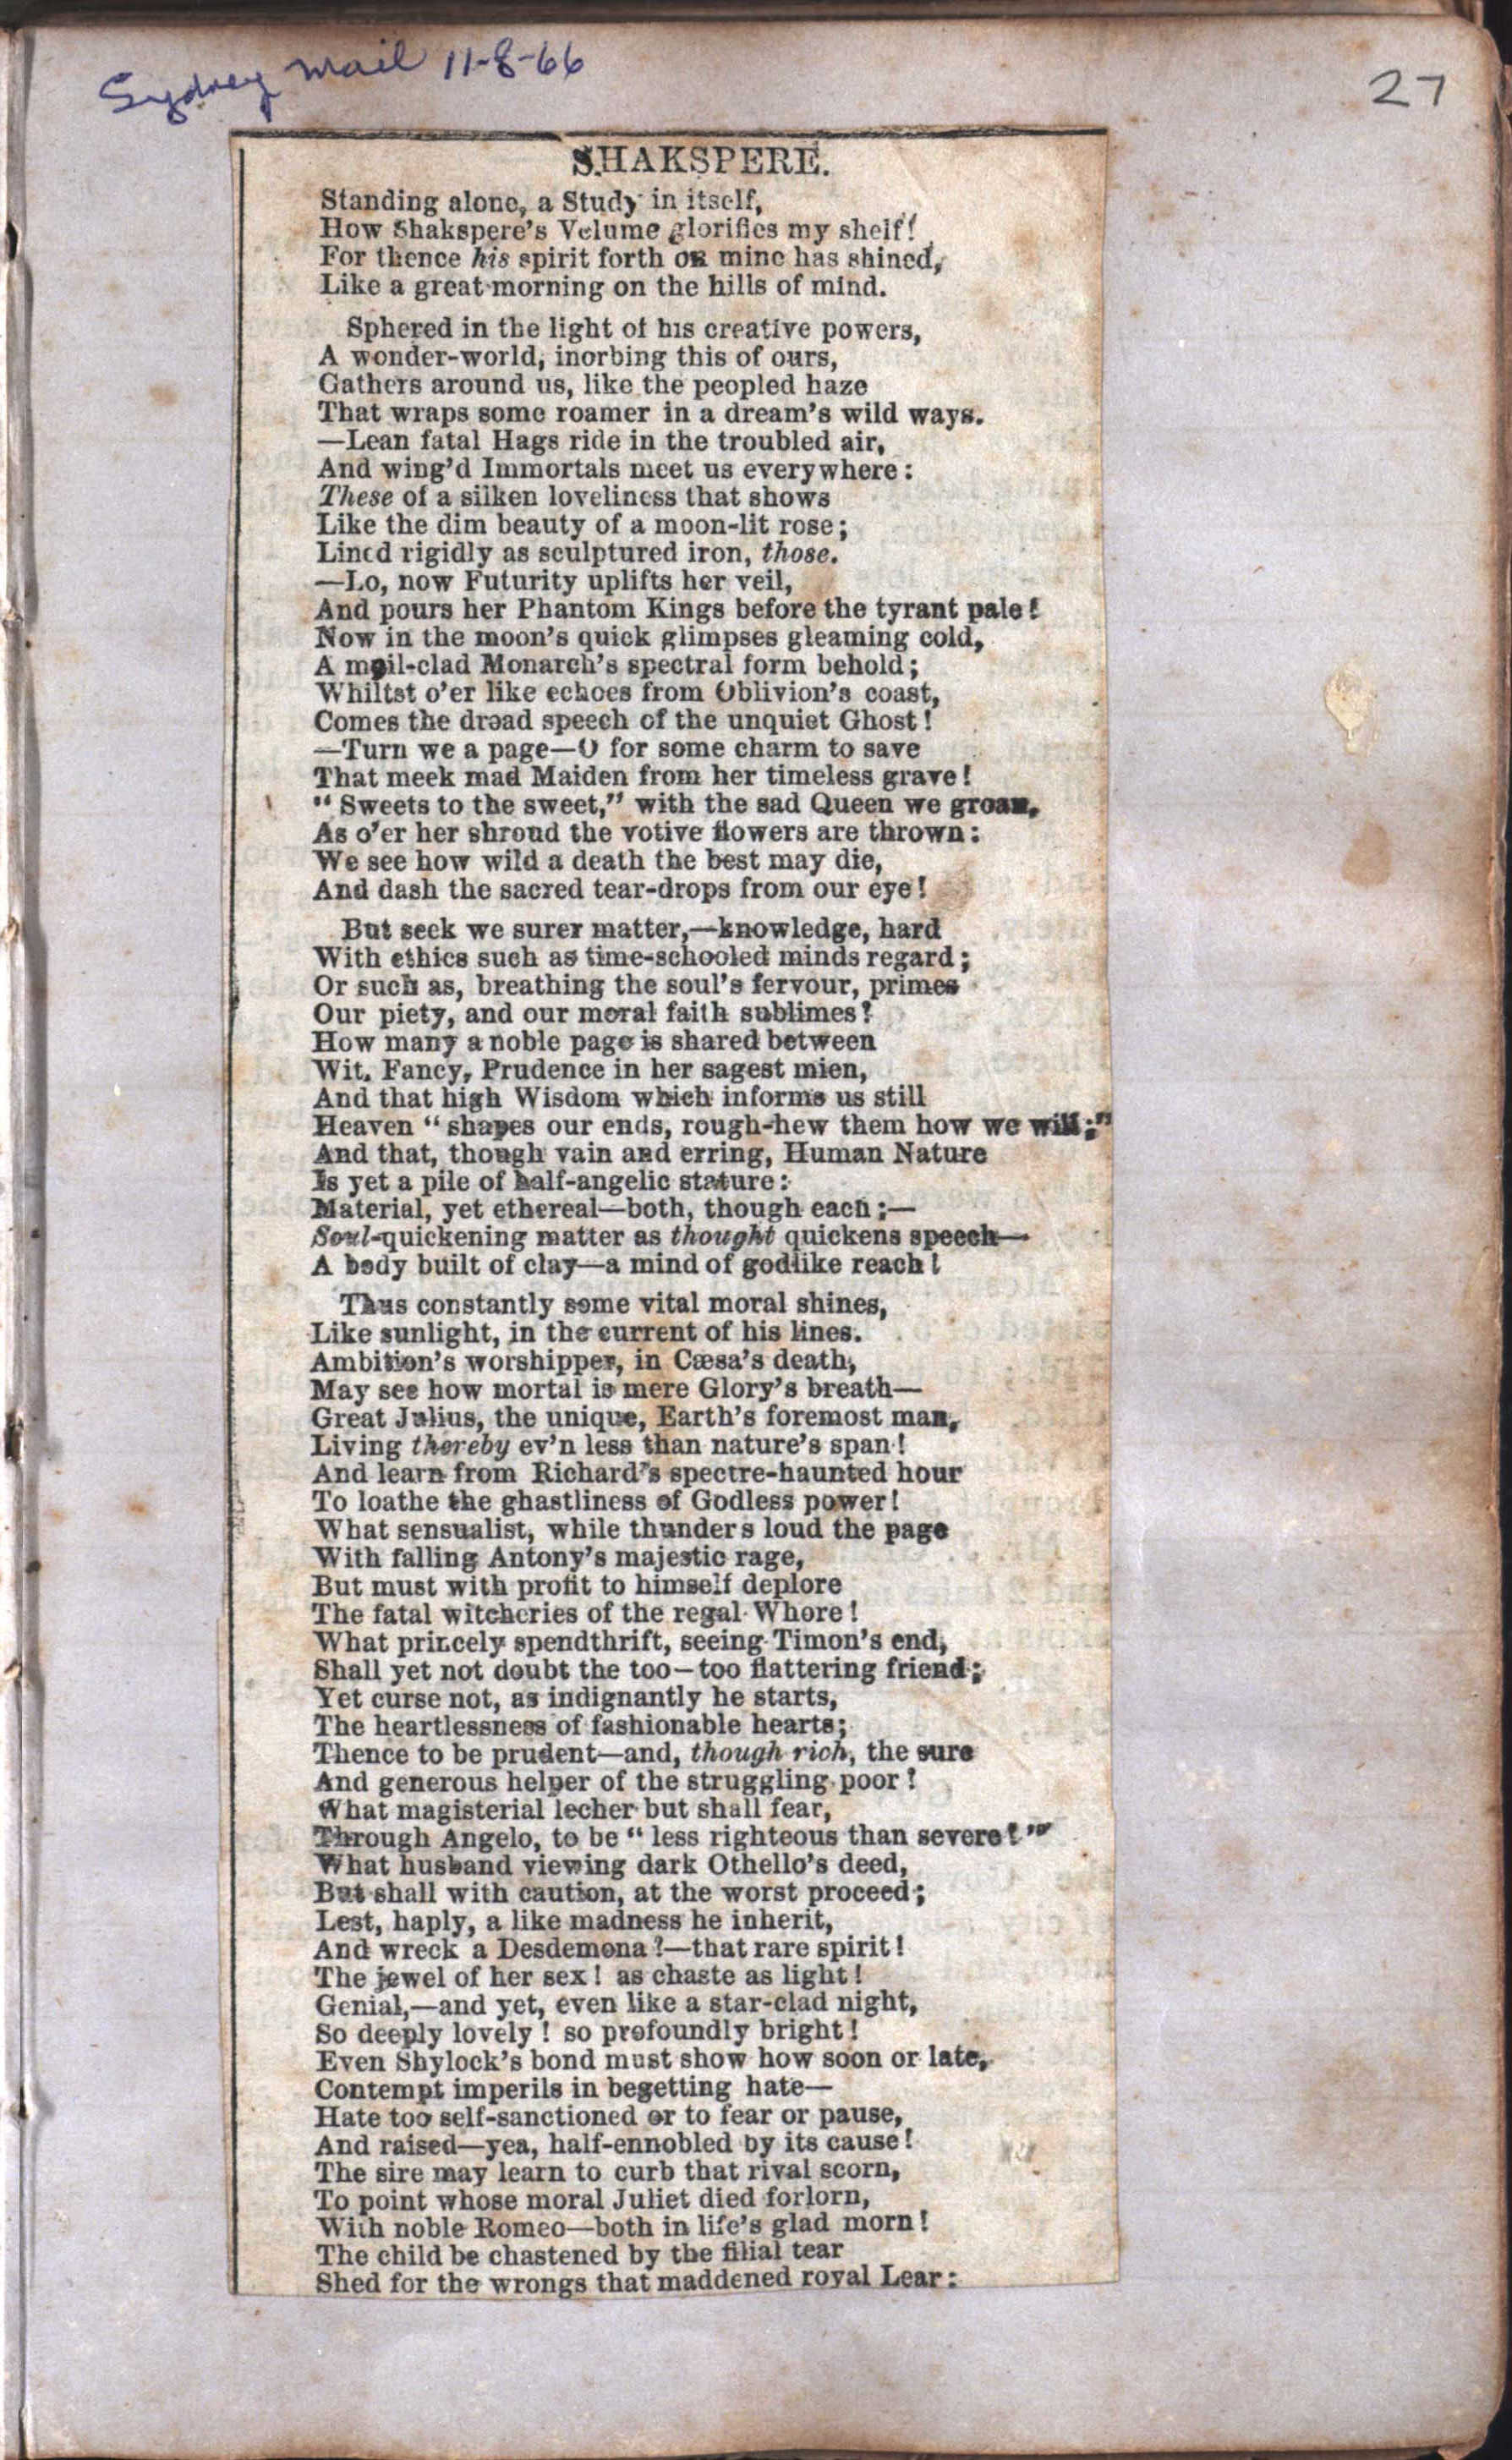 Sydney Mail 11-8-66
27
SHAKSPERE.
Standing alone, a Study in itself,
How Shakspere's Volume glorifies my shelf!
For thence his spirit forth on mine has shined,
Like a great morning on the hills of mind.
Sphered in the light of his creative powers,
A wonder-world, inorbing this of ours,
Gathers around us, like the peopled haze
That wraps some roamer in a dream's wild ways.
—Lean fatal Hags ride in the troubled air,
And wing'd Immortals meet us everywhere:
These of a silken loveliness that shows
Like the dim beauty of a moon-lit rose;
Lined rigidly as sculptured iron, those.
—Lo, now Futurity uplifts her veil,
And pours her Phantom Kings before the tyrant pale!
Now in the moon's quick glimpses gleaming cold,
A mail-clad Monarch's spectral form behold;
Whiltst o'er like echoes from Oblivion's coast,
Comes the dread speech of the unquiet Ghost!
—Turn we a page—O for some charm to save
That meek mad Maiden from her timeless grave!
"Sweets to the sweet," with the sad Queen we groan,
As o'er her shroud the votive flowers are thrown:
We see how wild a death the best may die,
And dash the sacred tear-drops from our eye!
But seek we surer matter,—knowledge, hard
With ethics such as time-schooled minds regard;
Or such as, breathing the soul's fervour, primes
Our piety, and our moral faith sublimes?
How many a noble page is shared between
Wit, Fancy, Prudence in her sagest mien,
And that high Wisdom which informs us still
Heaven "shapes our ends, rough-hew them how we will;"
And that, though vain and erring, Human Nature
Is yet a pile of half-angelic stature:
Material, yet ethereal—both, though each;—
Soul-quickening matter as thought quickens speech—
A body built of clay—a mind of godlike reach!
Thus constantly some vital moral shines,
Like sunlight, in the current of his lines.
Ambition's worshipper, in Cæsa's death,
May see how mortal is mere Glory's breath—
Great Julius, the unique, Earth's foremost man,
Living thereby ev'n less than nature's span!
And learn from Richard's spectre-haunted hour
To loathe the ghastliness of Godless power!
What sensualist, while thunders loud the page
With falling Antony's majestic rage,
But must with profit to himself deplore
The fatal witcheries of the regal Whore!
What princely spendthrift, seeing Timon's end,
Shall yet not doubt the too—too flattering friend;
Yet curse not, as indignantly he starts,
The heartlessness of fashionable hearts;
Thence to be prudent—and, though rich, the sure
And generous helper of the struggling poor!
What magisterial lecher but shall fear,
Through Angelo, to be "less righteous than severe!"
What husband viewing dark Othello's deed,
But shall with caution, at the worst proceed;
Lest, haply, a like madness he inherit,
And wreck a Desdemona?—that rare spirit!
The jewel of her sex! as chaste as light!
Genial,—and yet, even like a star-clad night,
So deeply lovely! so profoundly bright!
Even Shylock's bond must show how soon or late,
Contempt imperils in begetting hate—
Hate too self-sanctioned or to fear or pause,
And raised—yea, half-ennobled by its cause!
The sire may learn to curb that rival scorn,
To point whose moral Juliet died forlorn,
With noble Romeo—both in life's glad morn!
The child be chastened by the filial tear
Shed for the wrongs that maddened royal Lear: